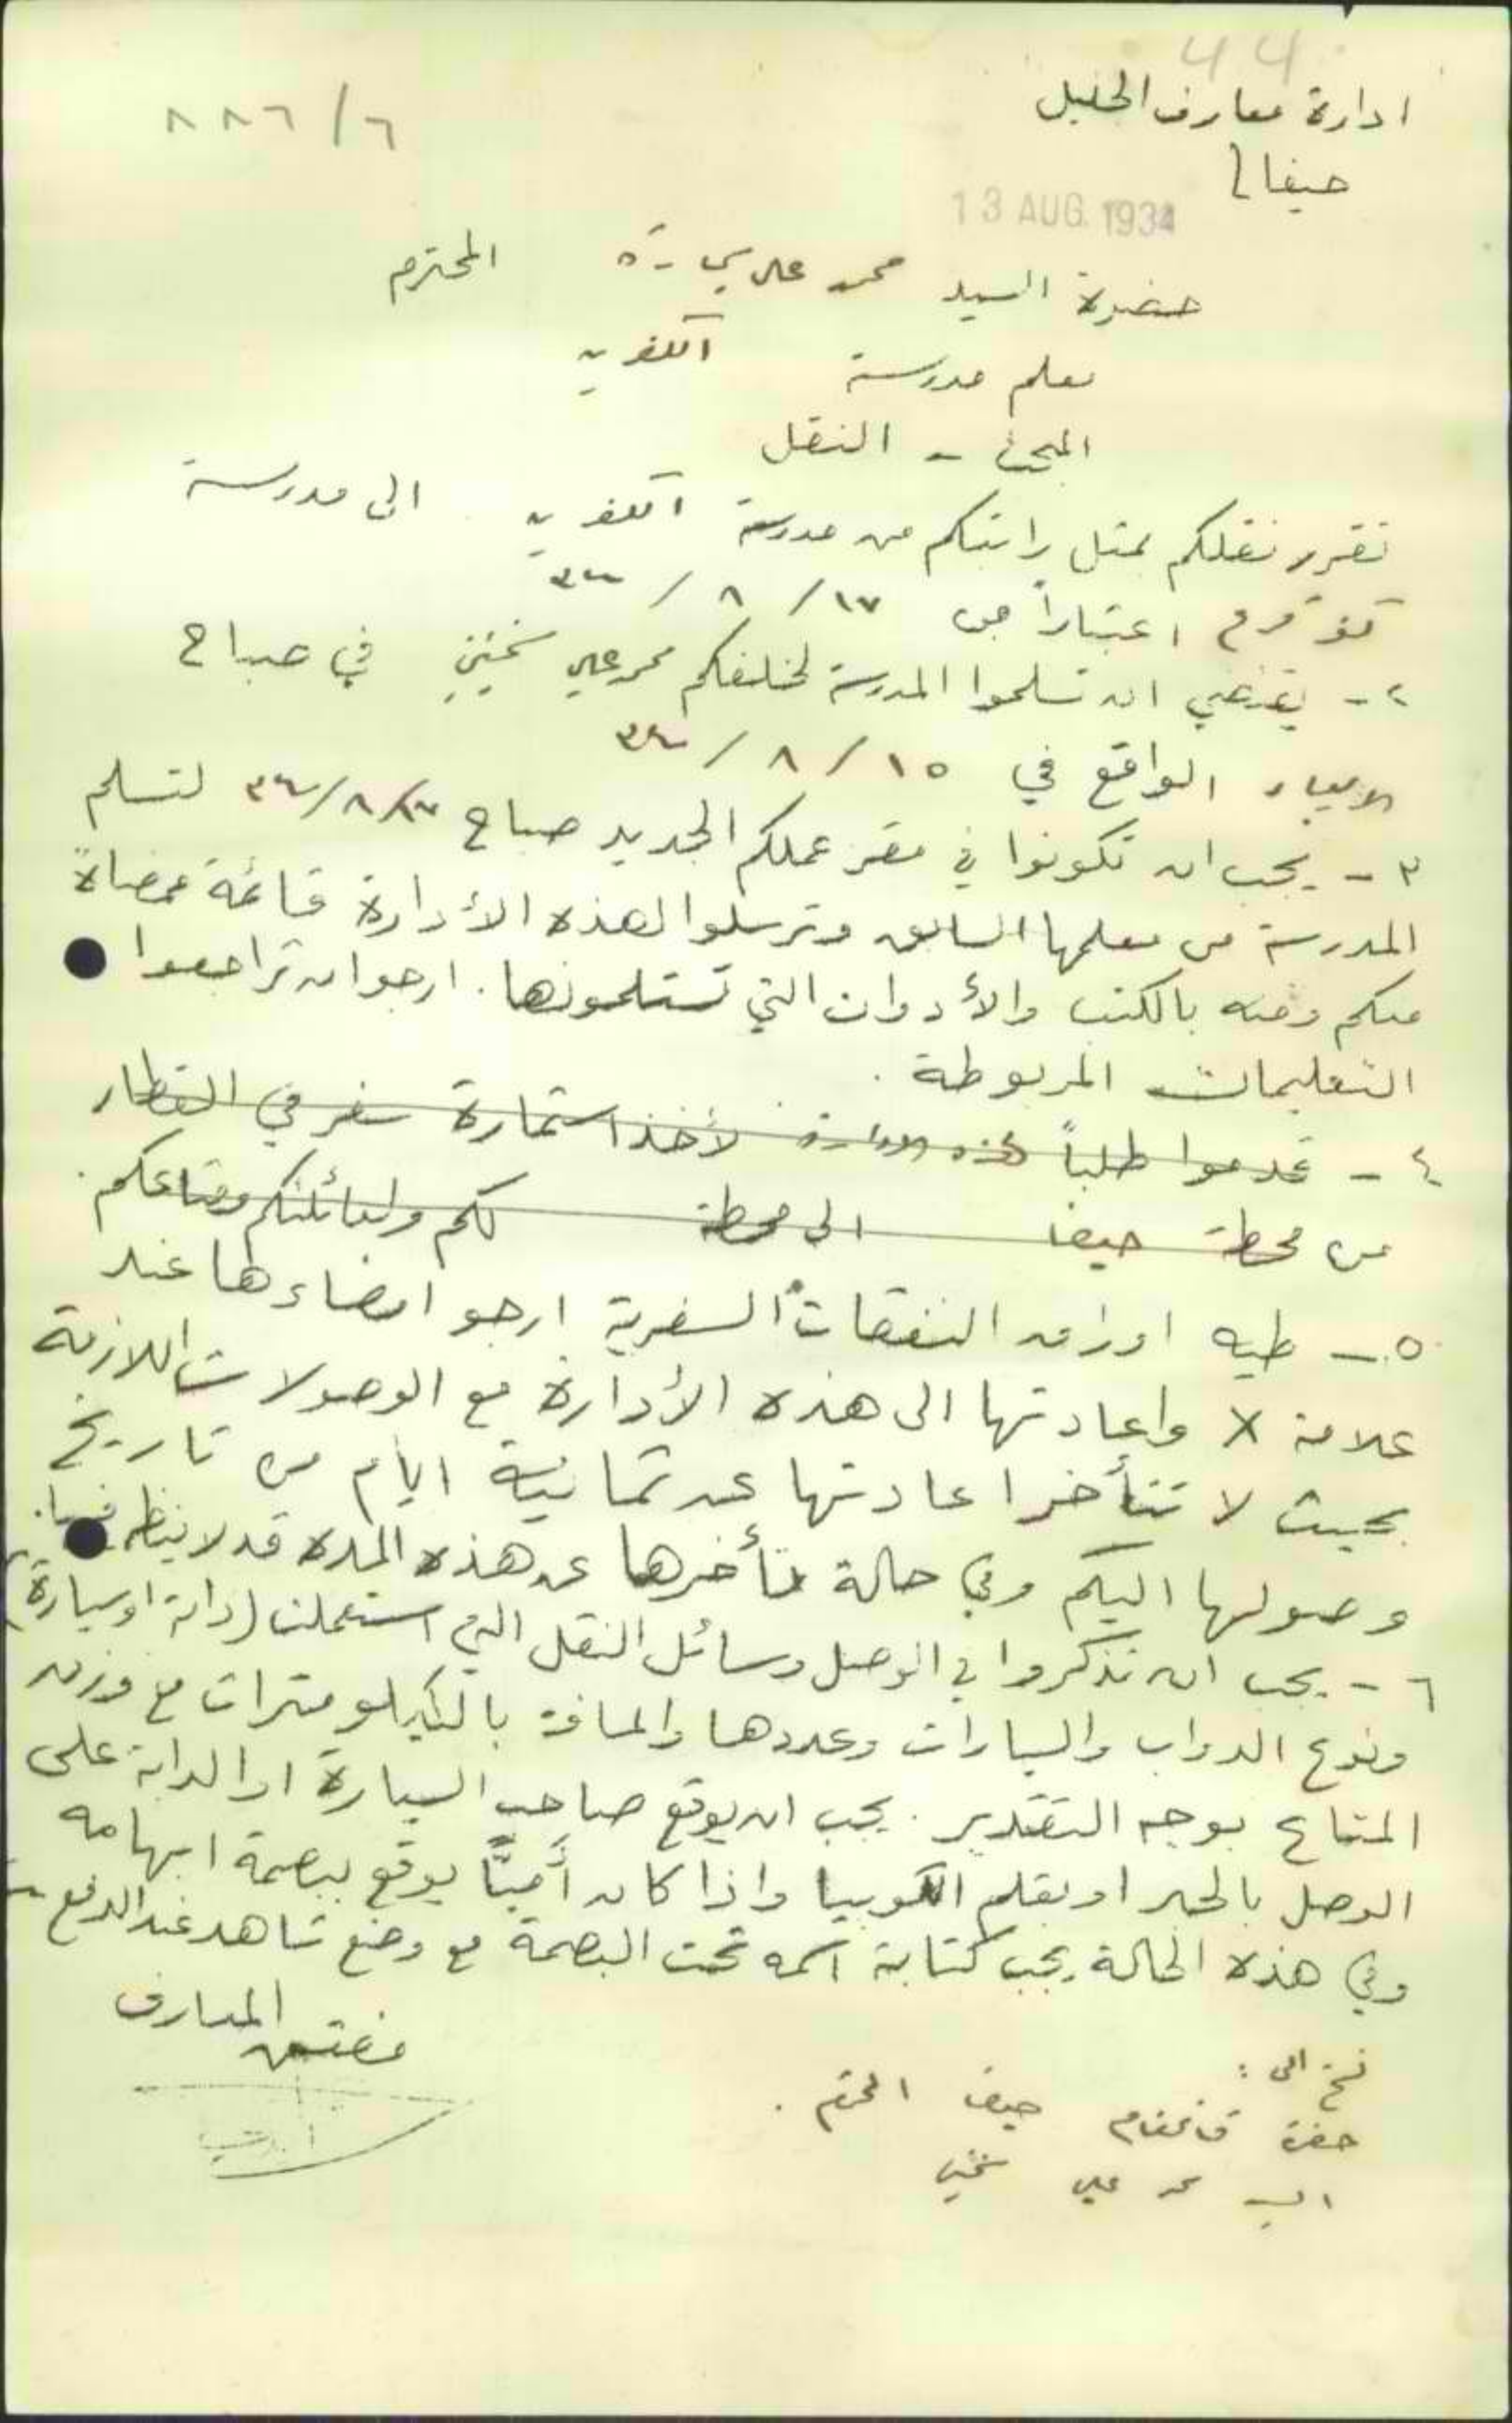 44
ادارة معارف الجليل
٨٨٦/٦
حيفا
13 AUG. 1934
حضرة السيد محمد علي المحترم
معلم مدرسة الكفرين
المبحث - النقل
تقرر نقلكم بمثل راتبكم من مدرسة الكفرين الى مدرسة
كفر قرع اعتباراً من ١٧ / ٨ / ٣٤
٢ - يقتضي ان تسلموا المدرسة لخلفكم محمد علي في صباح
الاربعاء الواقع في ١٥ / ٨ / ٣٤
٣ - يجب ان تكونوا في مقر عملكم الجديد صباح ١٧/٨/٣٤ لتسلم
المدرسة من معلمها السابق وترسلوا لهذه الأدارة قائمة ممضاة
منكم ومنه بالكتب والأدوات التي تستلمونها. ارجو ان تراجعوا
التعليمات المربوطة.
٤ - قدموا طلباً لهذه الادارة لأخذ استمارة سفر في القطار
من محطة حيفا الى محطة لكم ولعائلتكم ومتاعكم.
٥ - طيه اوراق النفقات السفرية ارجو امضاءها عند
علامة X واعادتها الى هذه الأدارة مع الوصولات اللازمة
بحيث لا تتأخر اعادتها عن ثمانية ايام من تاريخ
وصولها اليكم وفي حالة تأخرها عن هذه المدة قد لا ينظر فيها.
٦ - يجب ان تذكروا في الوصل وسائل النقل التي استعملت (دابة او سيارة)
ونوع الدواب والسيارات وعددها والمسافة بالكيلو مترات مع وزن
المتاع بوجه التقدير. يجب ان يوقع صاحب السيارة او الدابة على
الوصل بالحبر او بقلم الكوبيا واذا كان أميّاً يوقع ببصمة ابهامه
وفي هذه الحالة يجب كتابة اسمه تحت البصمة مع وضع شاهد عند الدفع
مفتش المعارف
نسخ الى:
حضرة قائمقام حيفا المحترم.
السيد محمد علي